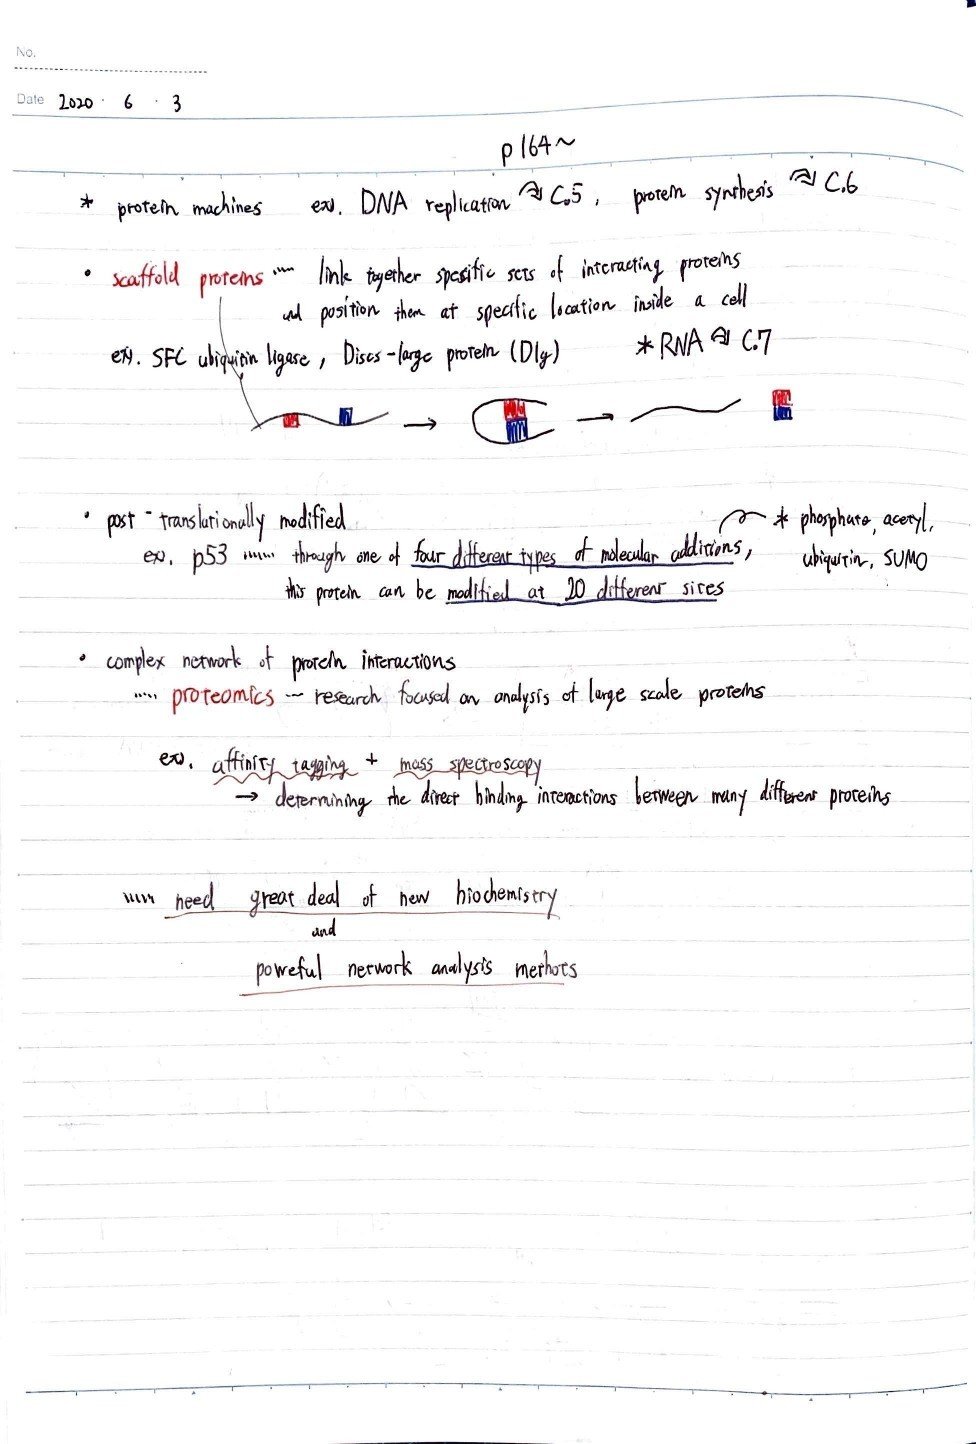 No.
Date 2020 · 6 · 3
p 164~
* protein machines ex. DNA replication C.5, protein synthesis C.6
· scaffold proteins ····· link together spesific sets of interacting proteins
and position them at specific location inside a cell
ex. SFC ubiquitin ligase, Discs-large protein (Dlg) * RNA C.7
· post-translationally modified
* phosphate, acetyl,
ex. p53 ······ through one of four different types of molecular additions,
ubiquitin, SUMO
this protein can be modified at 20 different sites
· complex network of protein interactions
····· proteomics — research focused on analysis of large scale proteins
ex. affinity tagging + mass spectroscopy
→ determining the direct binding interactions between many different proteins
····· need great deal of new biochemistry
and
poweful network analysis methots